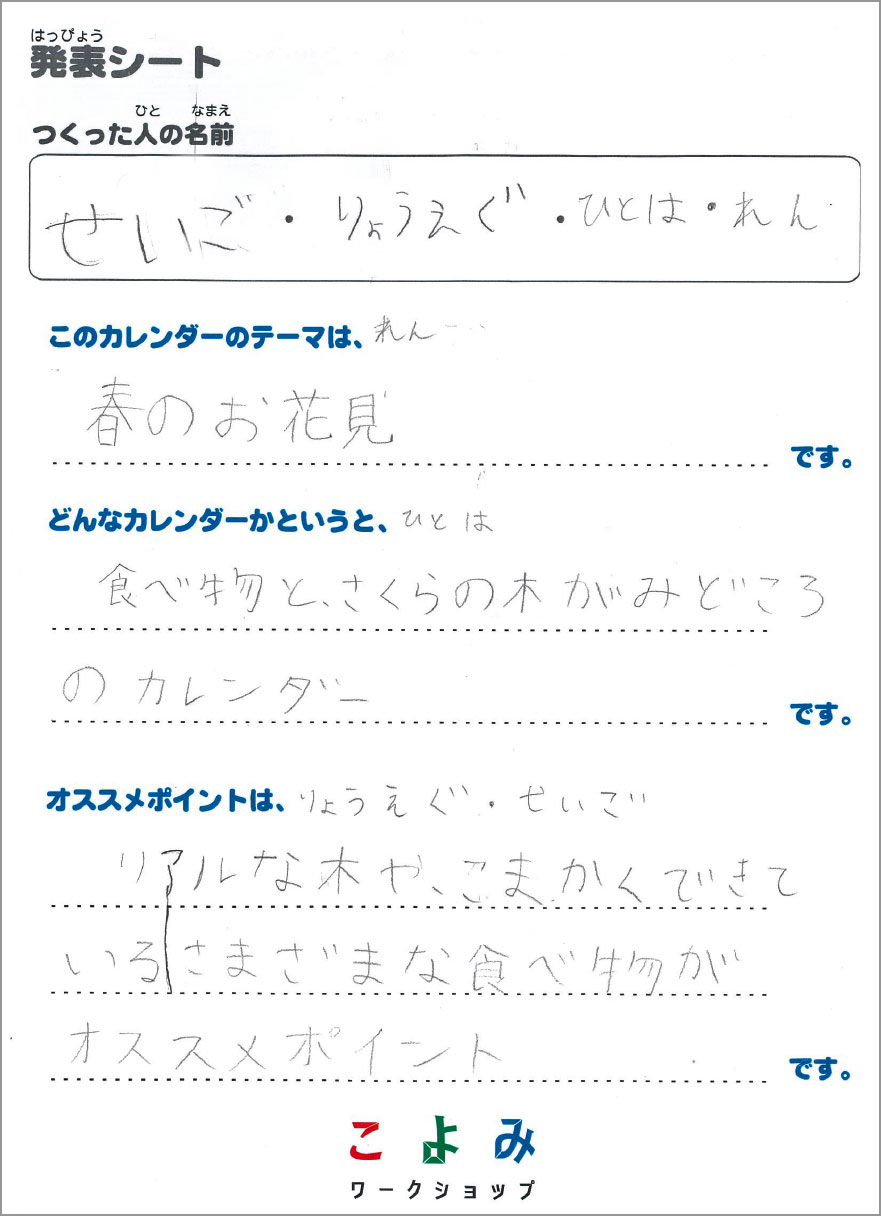 はっぴょう
発表シート
ひと なまえ
つくった人の名前
せいご・りょうえぐ・ひとは・れん
このカレンダーのテーマは、れん
春のお花見
です。
どんなカレンダーかというと、ひとは
食べ物と、さくらの木がみどころ
のカレンダー
です。
オススメポイントは、りょうえぐ・せいご
リアルな木や、こまかくできて
いるさまざまな食べ物が
オススメポイント
です。
こよみ
ワークショップ